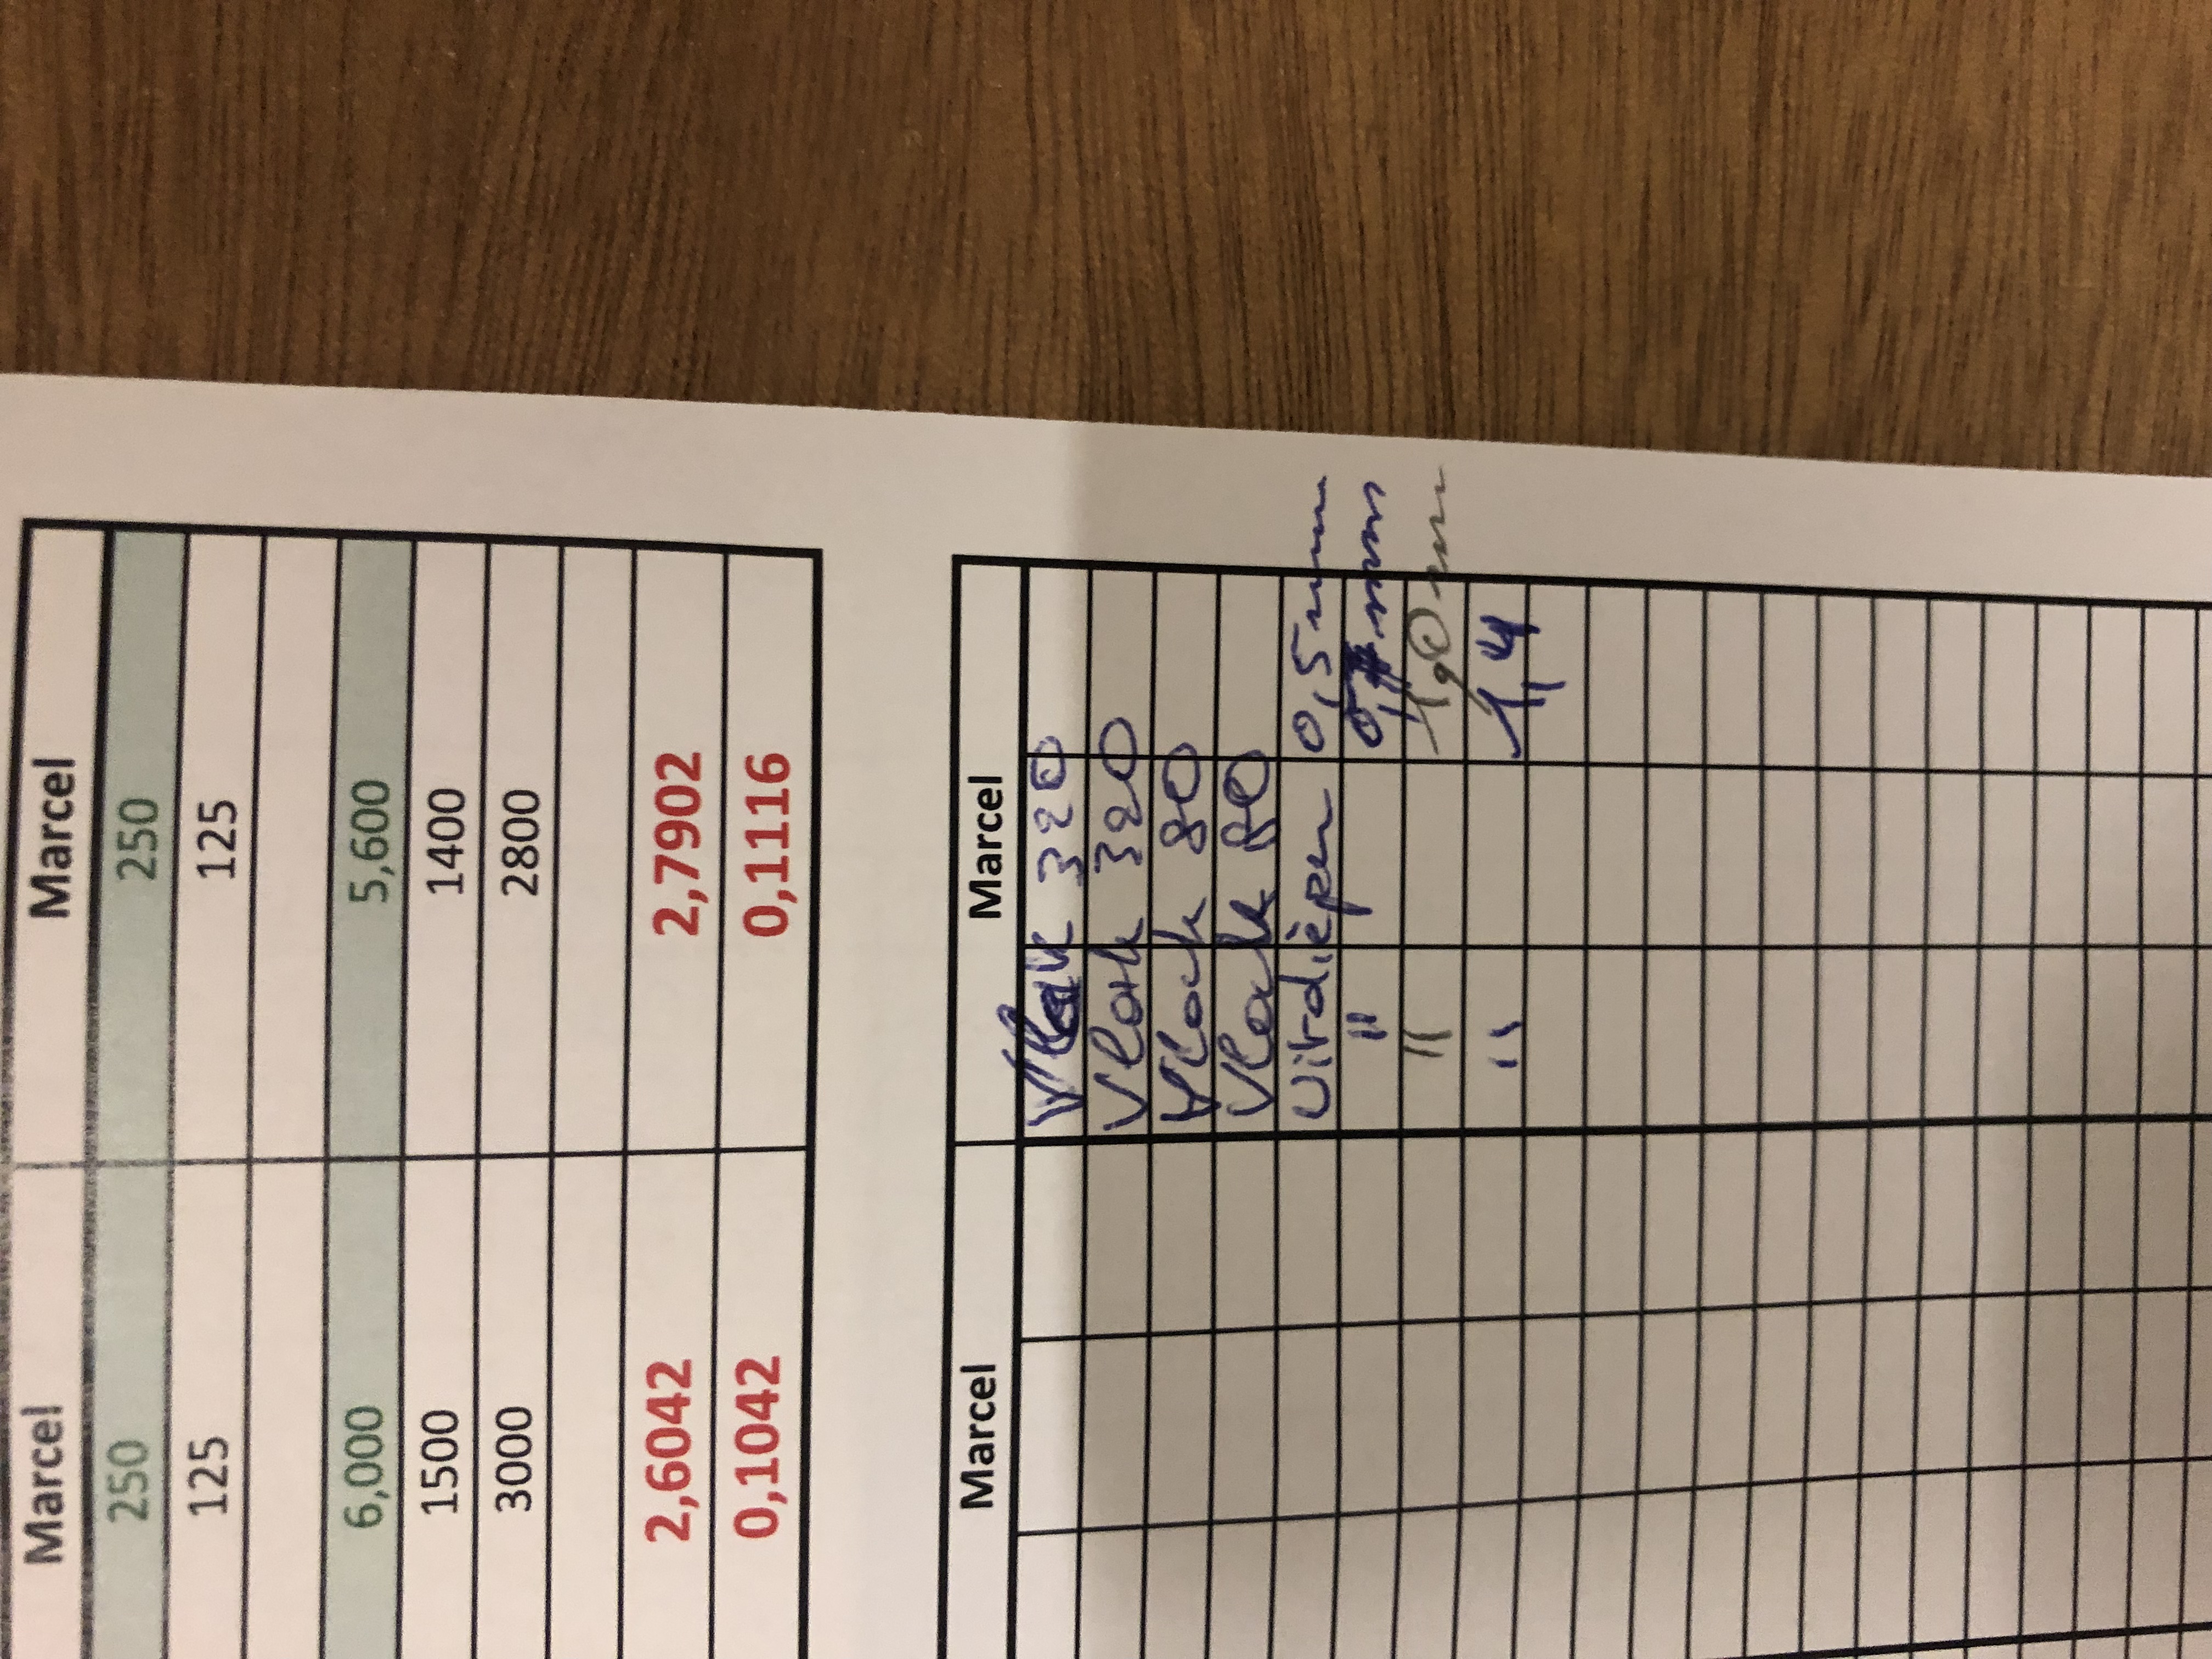 Marcel Marcel
250 250
125 125
6,000 5,600
1500 1400
3000 2800
2,6042 2,7902
0,1042 0,1116
Marcel Marcel
Vlak 320
Vlak 320
Vlak 80
Vlak 80
Uitdiepen 0,5mm
" mm
" 1,0mm
" 1,4